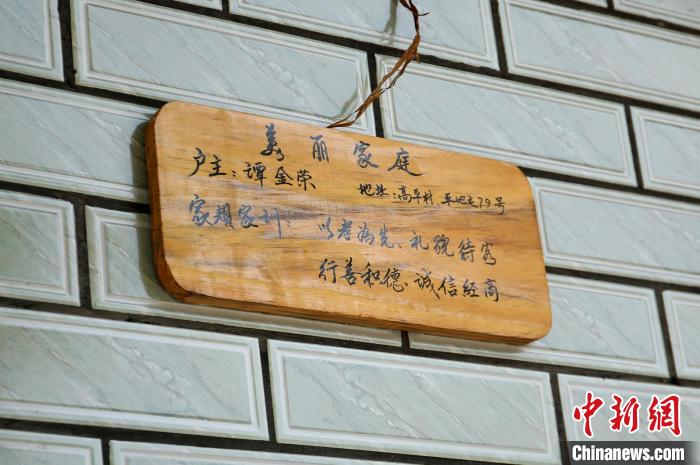 美丽家庭
户主：谭金荣 地址：高平村 平地去79号
家规家训： 以孝為先、礼貌待客
行善和德、诚信经商
中新网
Chinanews.com